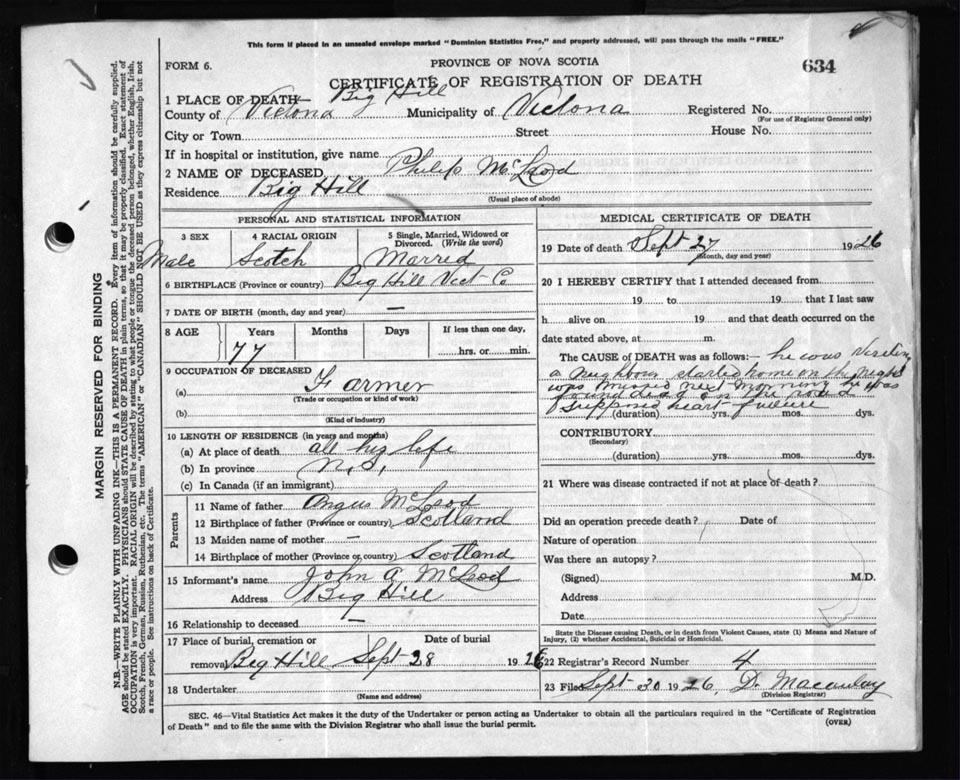 This form if placed in an unsealed envelope marked "Dominion Statistics Free," and properly addressed, will pass through the mails "FREE."
FORM 6.
PROVINCE OF NOVA SCOTIA
634
CERTIFICATE OF REGISTRATION OF DEATH
1 PLACE OF DEATH Big Hill
County of Victoria Municipality of Victoria Registered No.
(For use of Registrar General only)
City or Town Street House No.
If in hospital or institution, give name
2 NAME OF DECEASED Philip McLeod
Residence Big Hill
(Usual place of abode)
PERSONAL AND STATISTICAL INFORMATION
3 SEX 4 RACIAL ORIGIN 5 Single, Married, Widowed or
Divorced. (Write the word)
Male Scotch Marred
6 BIRTHPLACE (Province or country) Big Hill Vict Co
7 DATE OF BIRTH (month, day and year) —
8 AGE Years Months Days If less than one day,
77 hrs. or min.
9 OCCUPATION OF DECEASED
(a) Farmer
(Trade or occupation or kind of work)
(b)
(Kind of industry)
10 LENGTH OF RESIDENCE (in years and months)
(a) At place of death all his life
(b) In province N.S.
(c) In Canada (if an immigrant)
Parents
11 Name of father Angus McLeod
12 Birthplace of father (Province or country) Scotland
13 Maiden name of mother —
14 Birthplace of mother (Province or country) Scotland
15 Informant's name John A McLeod
Address Big Hill
16 Relationship to deceased —
17 Place of burial, cremation or Date of burial
removal Big Hill Sept 28 1926
18 Undertaker
(Name and address)
MEDICAL CERTIFICATE OF DEATH
19 Date of death Sept 27 1926
(Month, day and year)
20 I HEREBY CERTIFY that I attended deceased from
19 to 19 that I last saw
h alive on 19 and that death occurred on the
date stated above, at m.
The CAUSE of DEATH was as follows:— he was
a Neighbour started home on the night
was missed next morning he was
found dead on the road
supposed heart failure
(duration) yrs. mos. dys.
CONTRIBUTORY
(Secondary)
(duration) yrs. mos. dys.
21 Where was disease contracted if not at place of death?
Did an operation precede death? Date of
Nature of operation
Was there an autopsy?
(Signed) M.D.
Address
Date
State the Disease causing Death, or in death from Violent Causes, state (1) Means and Nature of
Injury, (2) whether Accidental, Suicidal or Homicidal.
22 Registrar's Record Number 4
23 Filed Sept 30 1926, D. Macaulay
(Division Registrar)
SEC. 46—Vital Statistics Act makes it the duty of the Undertaker or person acting as Undertaker to obtain all the particulars required in the "Certificate of Registration
of Death" and to file the same with the Division Registrar who shall issue the burial permit. (OVER)
MARGIN RESERVED FOR BINDING
N.B.—WRITE PLAINLY WITH UNFADING INK—THIS IS A PERMANENT RECORD. Every item of information should be carefully supplied.
AGE should be stated EXACTLY. PHYSICIANS should STATE CAUSE OF DEATH in plain terms, so that it may be properly classified. Exact statement of
OCCUPATION is very important. RACIAL ORIGIN will be described by stating to what people or tongue the deceased person belonged, whether English, Irish,
Scotch, French, German, Russian, Ruthenian, etc. The terms "AMERICAN" or "CANADIAN" SHOULD NOT BE USED as they express citizenship but not
a race or people. See instructions on back of Certificate.